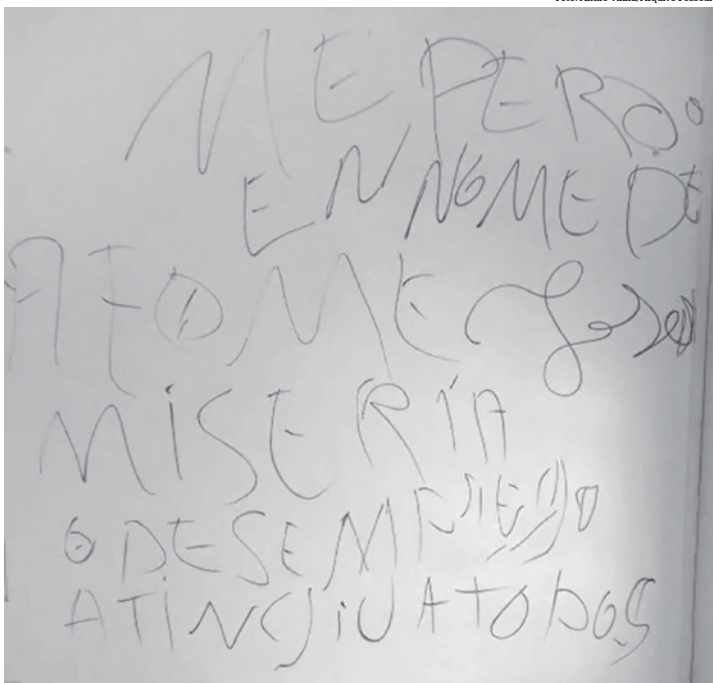 ME PERDO
EN NOME DE
A FOME
MISERIA
O DESEMPREGO
ATINGIU A TODOS